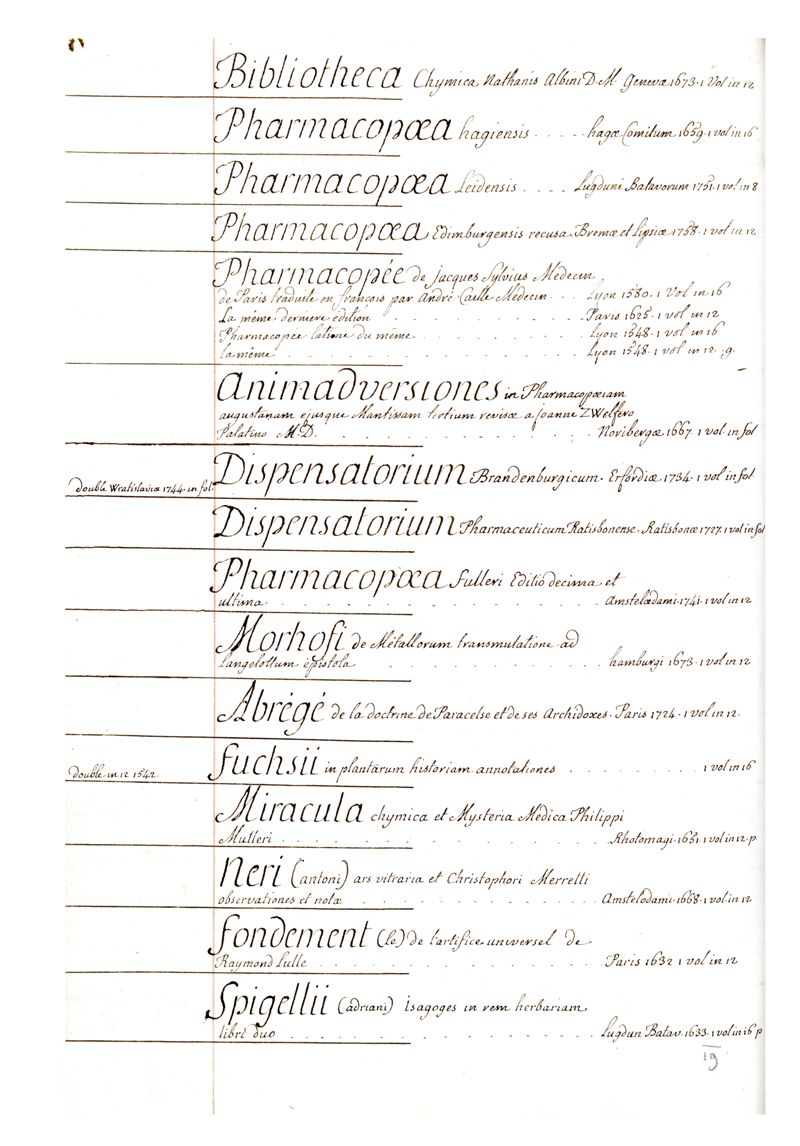 Bibliotheca Chymica Nathanis Albini D. M. Genevæ 1673. 1 Vol in 12
Pharmacopœa hagiensis . . . . . hagæ Comitum 1659. 1 vol in 16
Pharmacopœa Leidensis . . . . Lugduni Batavorum 1751. 1 vol in 8
Pharmacopœa Edimburgensis recusa Bremæ et Lipsiæ 1758. 1 vol in 12
Pharmacopée de Jacques Sylvius Medecin
de Paris traduite en françois par André Caille Medecin . . . Lyon 1580. 1 Vol in 16
La même derniere édition . . . . . . . . . . Paris 1625. 1 vol in 12
Pharmacopée latine du même . . . . . . . . . Lyon 1548. 1 vol in 16
la même . . . . . . . . . . . . . . . Lyon 1548. 1 vol in 12. g.
Animadversiones in Pharmacopœiam
augustanam ejusque Mantissam tertium revisæ a Joanne ZWelfero
Palatino M. D. . . . . . . . . . . . . . Noribergæ 1667. 1 vol. in fol
Dispensatorium Brandenburgicum. Erfordiæ 1734. 1 vol in fol.
double Wratislaviæ 1744. in fol.
Dispensatorium Pharmaceuticum Ratisbonense. Ratisbonæ 1727. 1 vol in fol
Pharmacopœa Fulleri Editio decima et
ultima . . . . . . . . . . . . . . Amstelædami. 1741. 1 vol in 12
Morhofi de Métallorum transmutatione ad
Langelottum épistola . . . . . . . . . . hamburgi 1673. 1 vol in 12
Abrégé de la doctrine de Paracelse et de ses Archidoxes. Paris 1724. 1 vol in 12.
fuchsii in plantarum historiam annotationes . . . . . . . . . 1 vol in 16
double in 12 1542.
Miracula chymica et Mysteria Medica Philippi
Mulleri . . . . . . . . . . . . . . Rhotomagi. 1651. 1 vol in 12. p
Neri (antoni) ars vitraria et Christophori Merretti
observationes et notæ . . . . . . . . . . Amstelodami. 1668. 1 vol in 12
fondement (le) de l'artifice universel de
Raymond Lulle . . . . . . . . . . . . Paris 1632 1 vol in 12
Spigellii (adriani) isagoges in rem herbariam
libri duo . . . . . . . . . . . . . . Lugdun Batav. 1633. 1 vol in 16 p
19